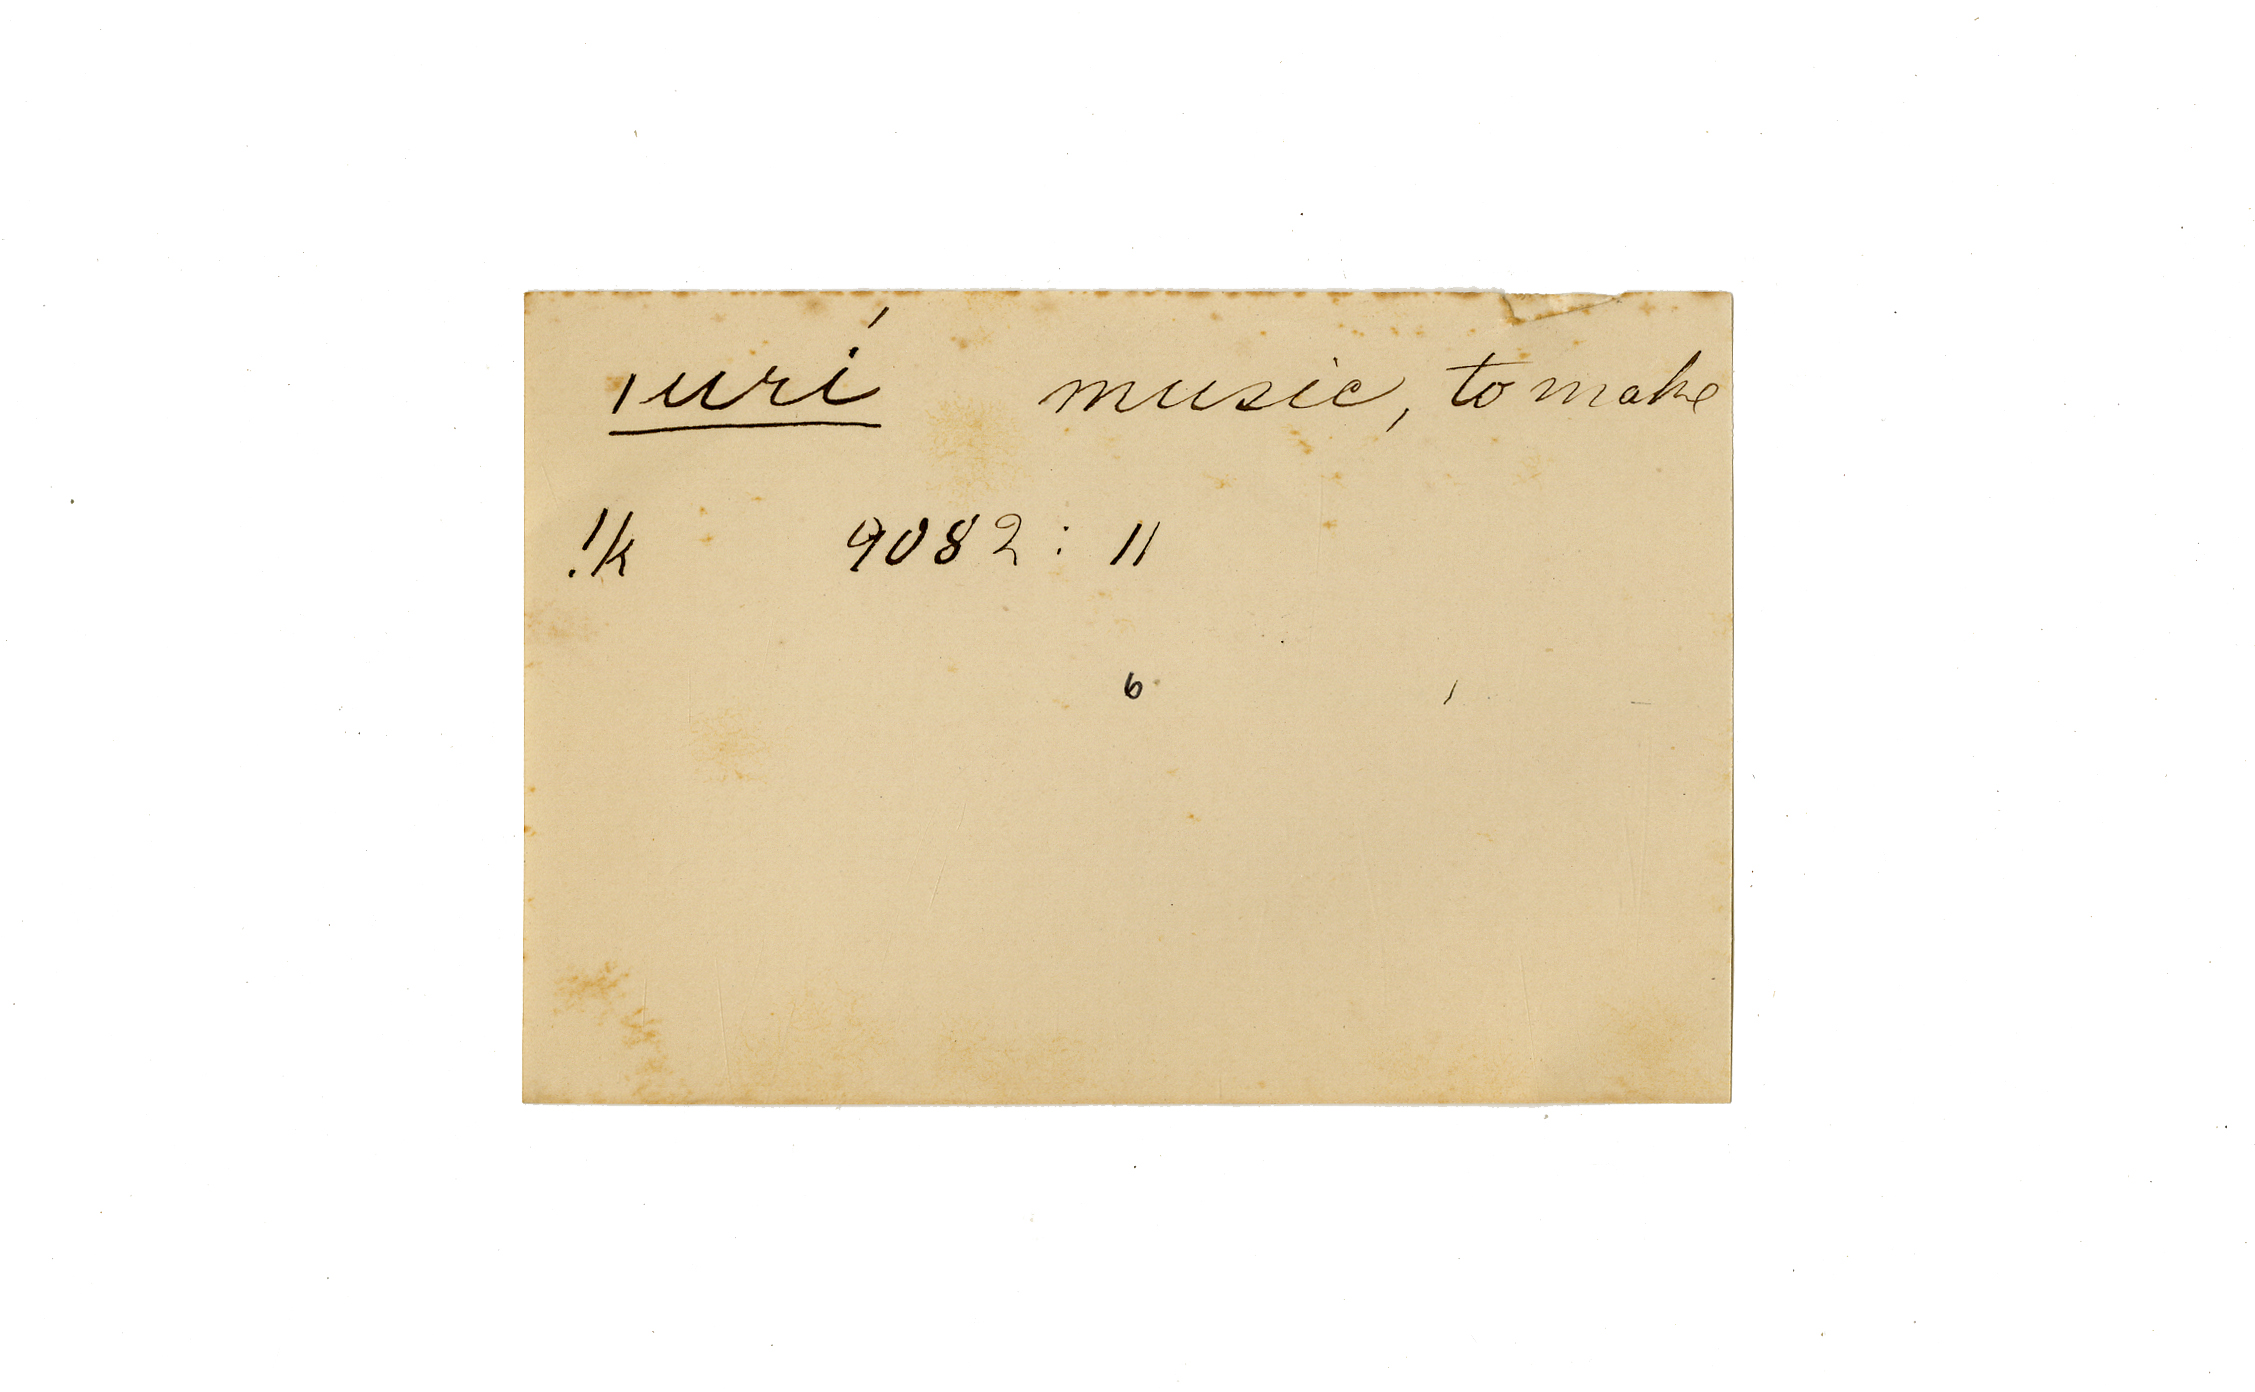 ǀurí music, to make
!k 9082 : 11
6